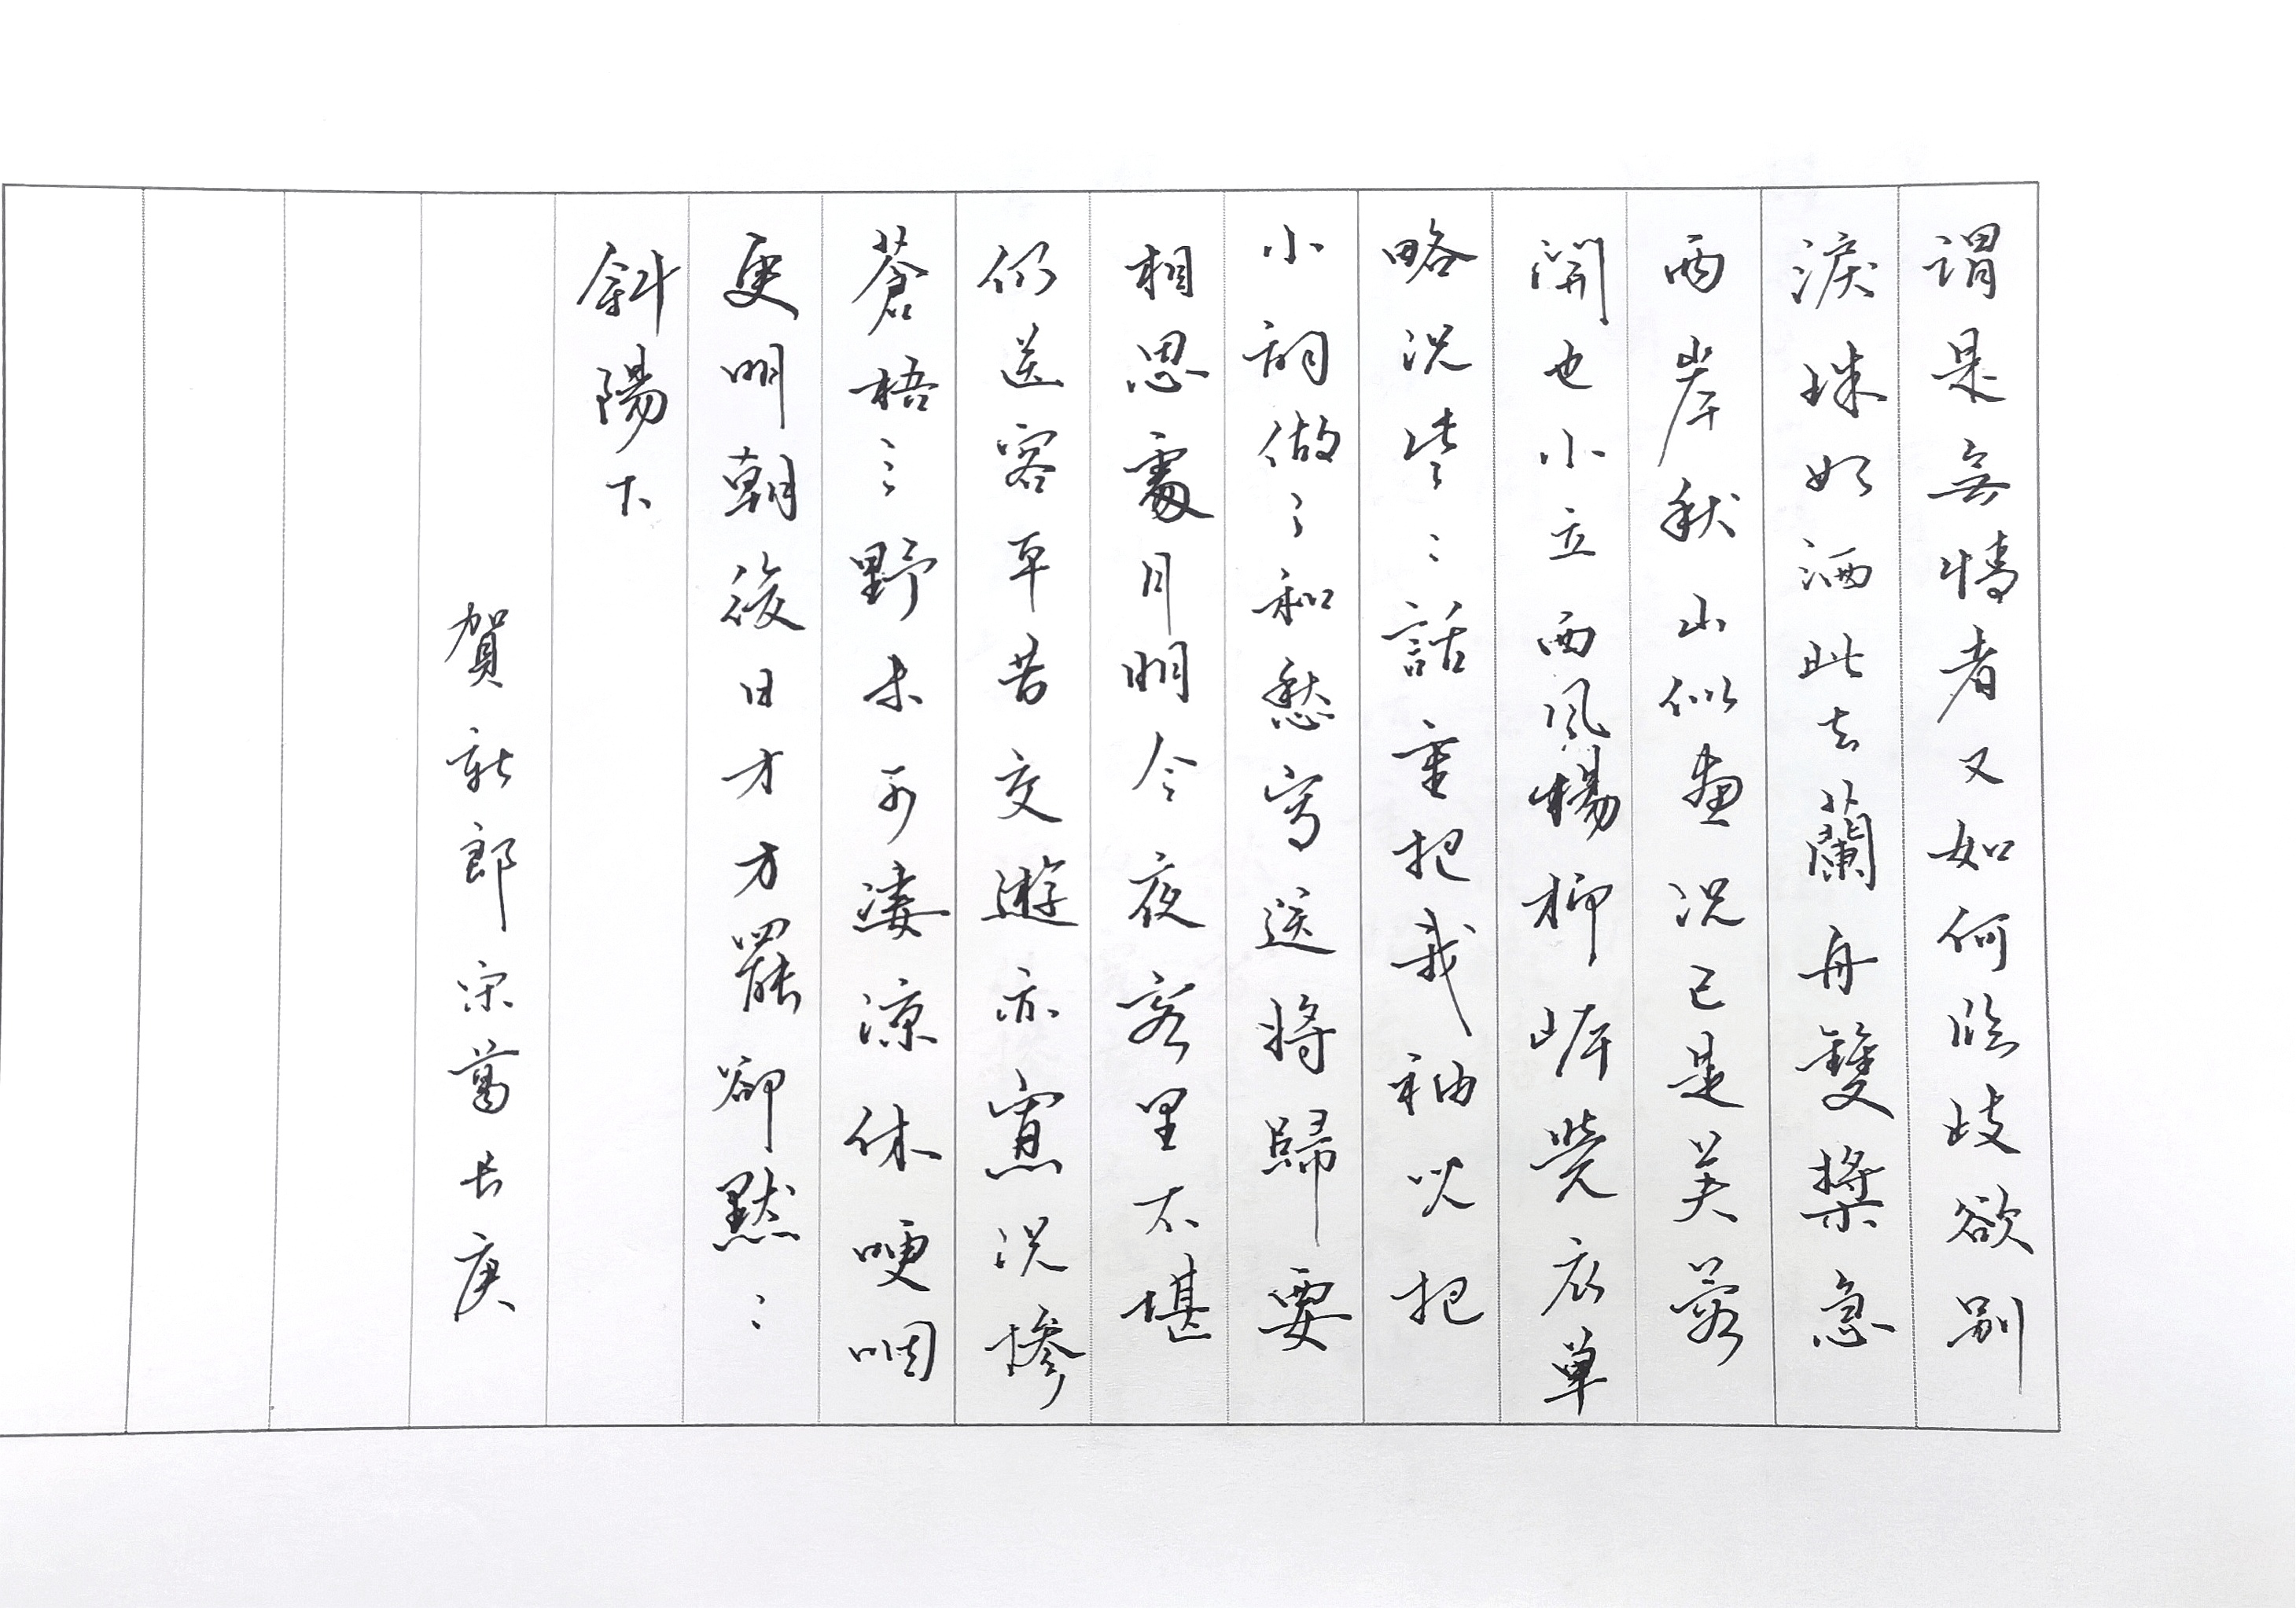 謂是無情者又如何臨歧欲別
淚珠如洒此去蘭舟雙槳急
兩岸秋山似畫況已是芙蓉
開也小立西風楊柳岸覺衣單
略説些〻話重把我袖兒把
小詞做了和愁寫送將歸要
相思處月明今夜客里不堪
仍送客平昔交遊亦寡況慘
蒼梧之野未可淒涼休哽咽
更明朝後日才方罷卻默〻
斜陽下
賀新郎宋葛長庚